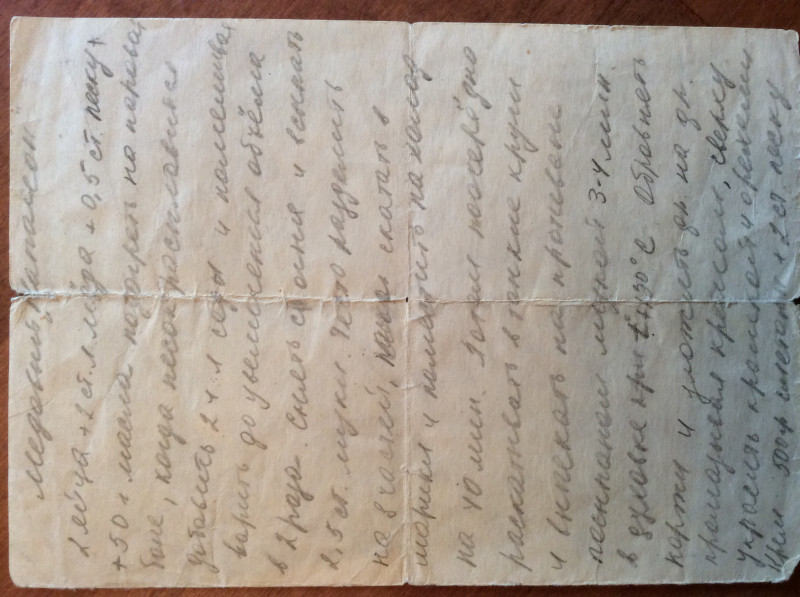 Медовый „Наполеон"
2 яйца + 2 ст. л мёда + 0,5 ст. песку +
+ 50 г масла подогреть на паровой
бане, когда песок расплавится
добавить 2 ч. л соды и помешивая
варить до увеличения объёма
в 2 раза. Снять с огня и всыпать
2,5 ст. муки. Тесто разделить
на 8 частей, каждую скатать в
шарики и поместить на холод
на 40 мин. Затем поочерёдно
раскатывать в тонкие круги
и выпекать на противне
посыпанном мукой 3-4 мин.
в духовке при t 130°С. Обровнять
коржи и уложить др. на др.
промазывая кремом, сверху
украсить крошкой и орехами
Крем. 500 гр сметаны + 2 ст песку